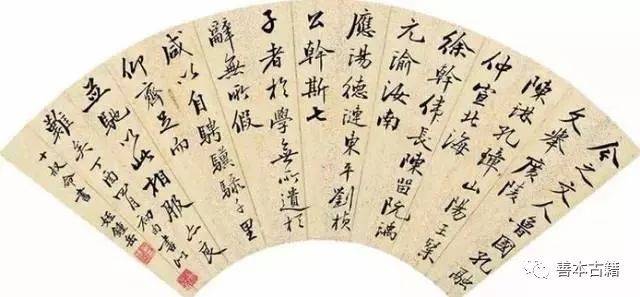 今之文人魯國孔融
文舉廣陵
陳琳孔璋山陽王粲
仲宣北海
徐幹偉長陳留阮瑀
元渝汝南
應湯德漣東平劉楨
公幹斯七
子者於學無所遺於
辭無所假
咸以自騁驥騄千里
仰齊足而
並馳以此相服亦良
難矣丁酉四月初
十叔命書 姪鍾岳
善本古籍